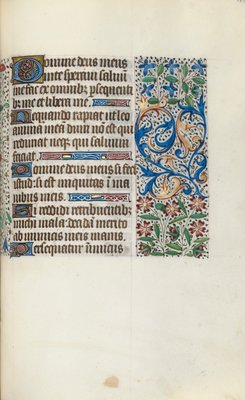 Domine deus meus
in te speraui saluū
me fac ex omnibꝫ psequenti
bꝫ me et libera me.
Nequando rapiat ut leo
animā meā dum nō est qui
redimat neqꝫ qui saluum
faciat.
Domine deus meus si feci
istud: si est iniquitas ī ma
nibus meis.
Si reddidi retribuentibꝫ
michi mala: decidā merito
ab inimicis meis inanis.
Persequatur inimicus